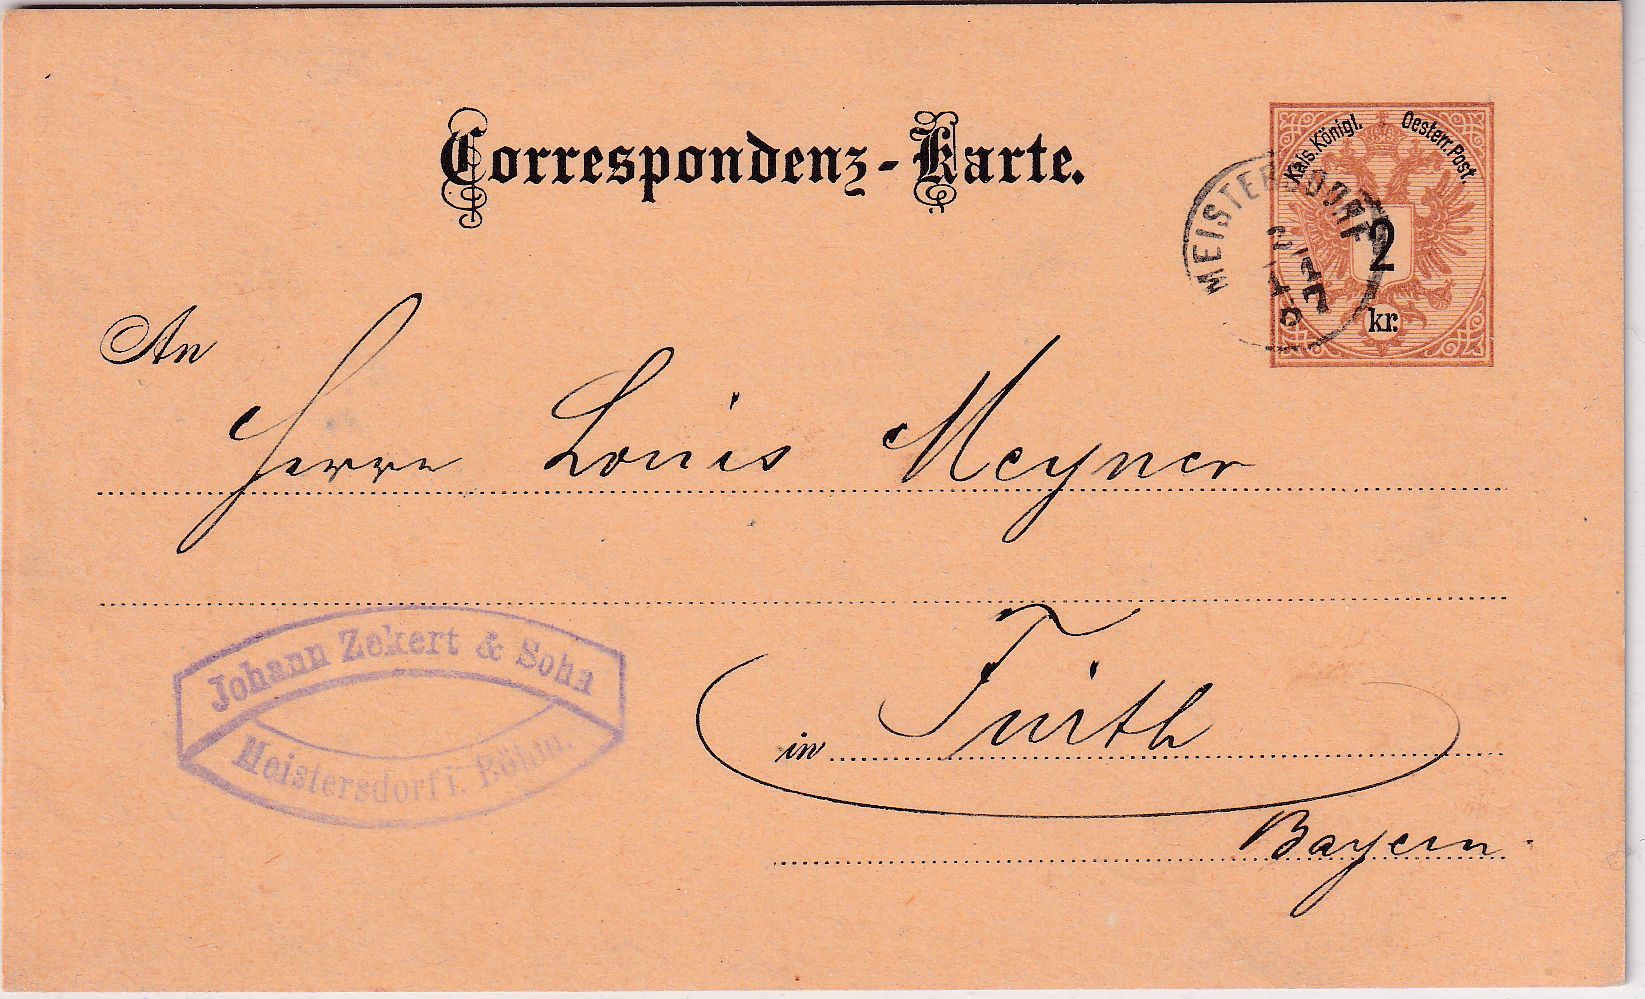 Correspondenz-Karte.
Kais. Königl. Oesterr. Post.
2
kr.
MEISTERSDORF
An
Herrn Louis Meyner
Johann Zekert & Sohn
Meistersdorf i. Böhm.
in Fürth
Bayern.